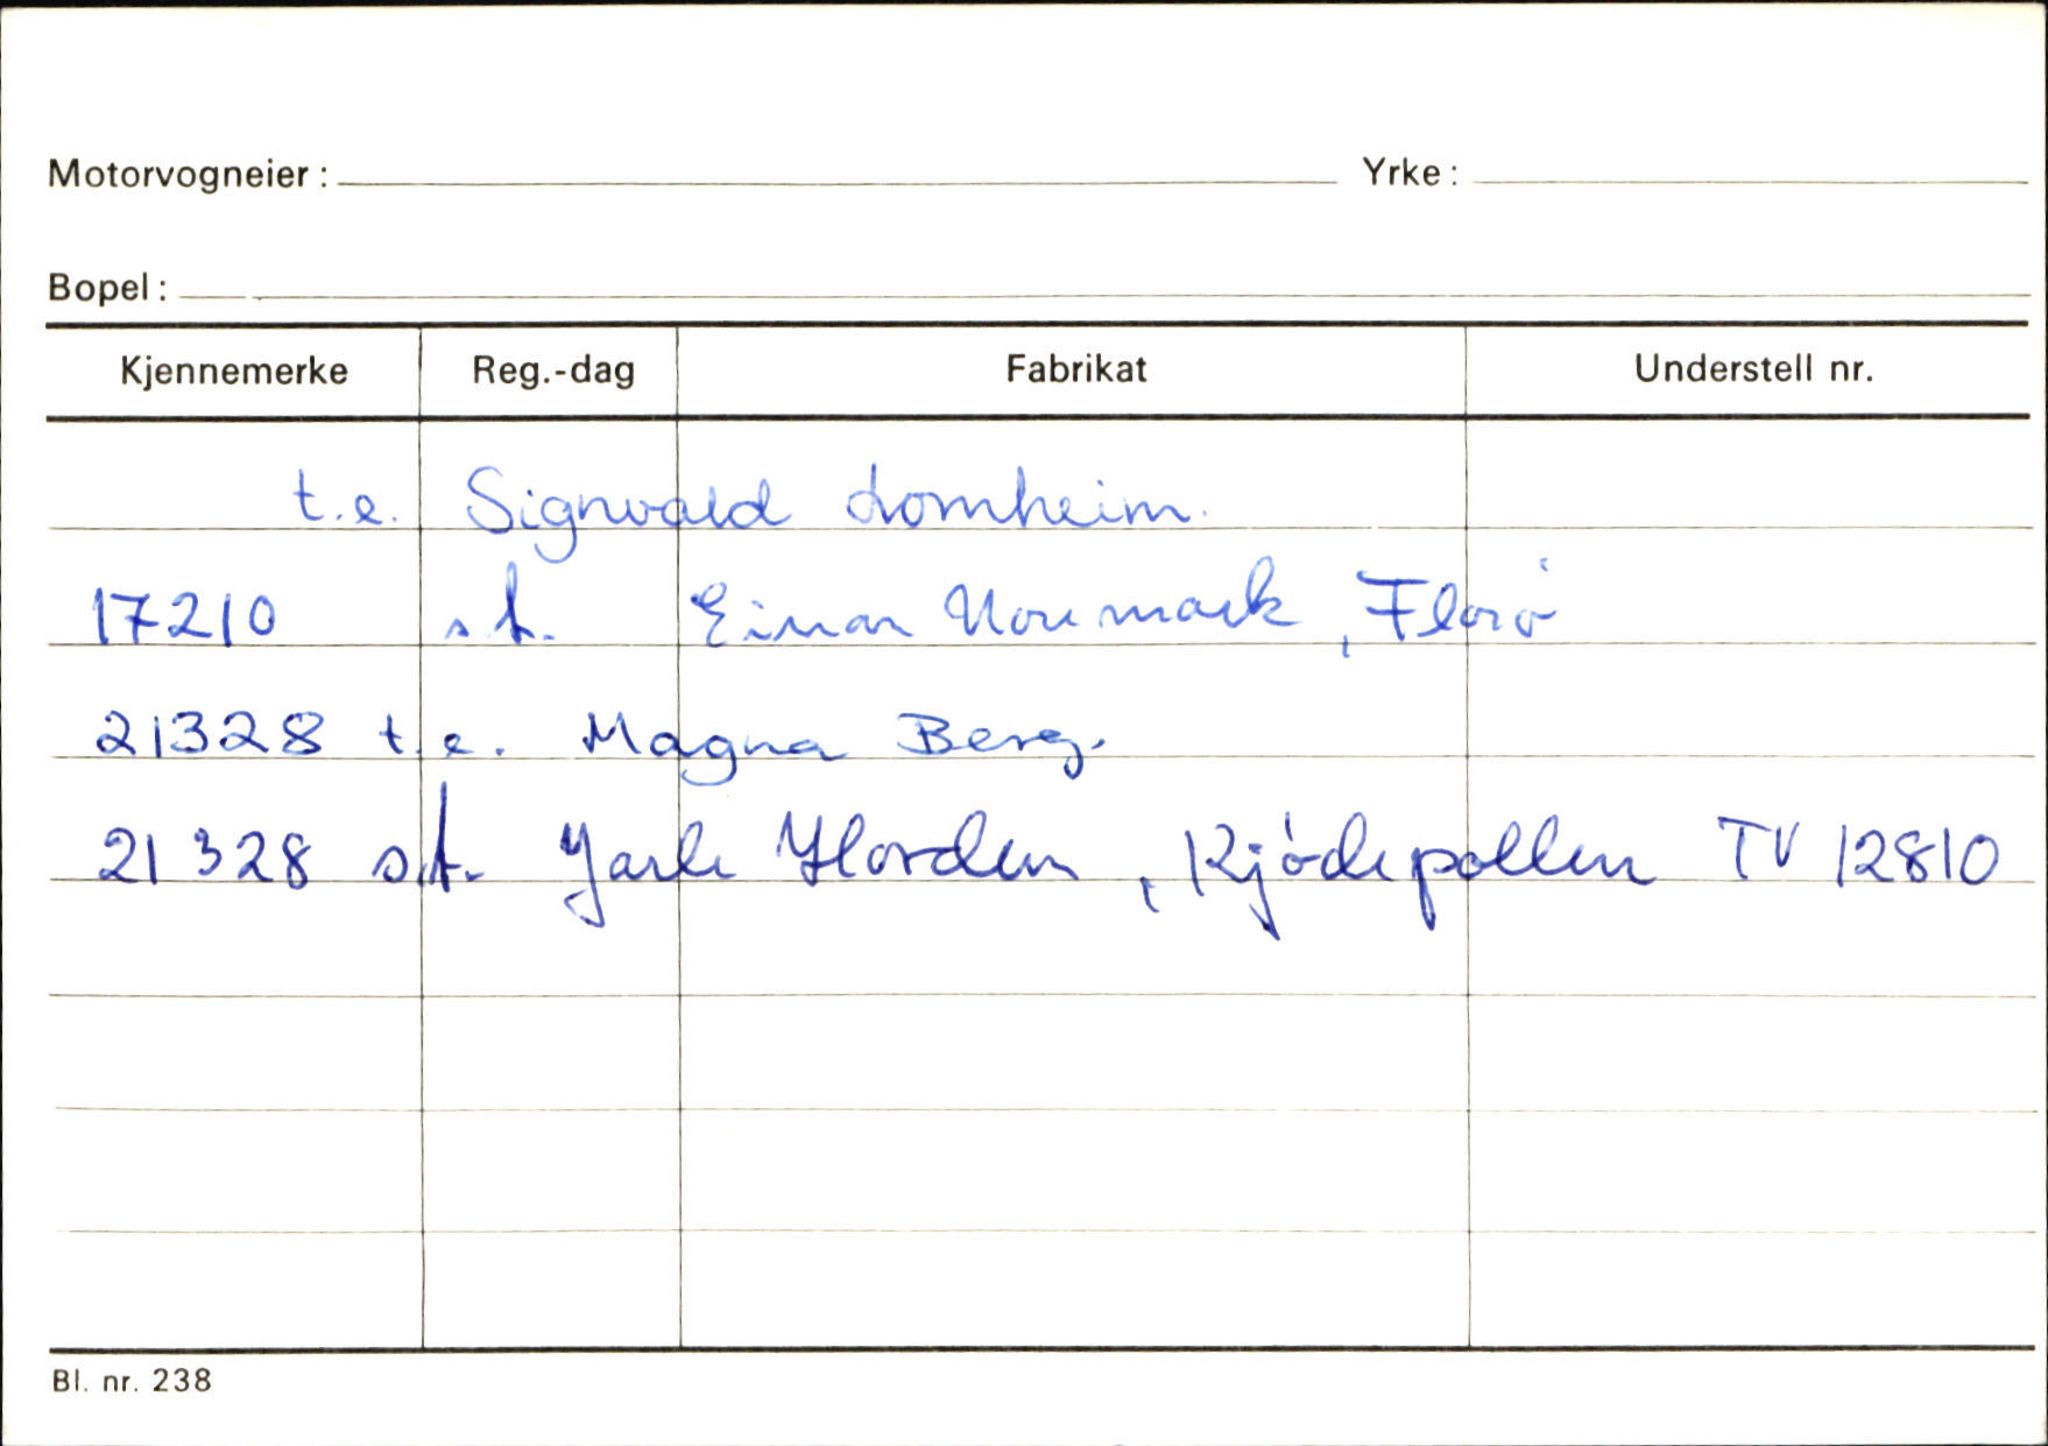 Motorvogneier: Yrke:
Bopel:
Kjennemerke Reg.-dag Fabrikat Understell nr.
t.e. Signvald Lomheim.
17210 s.t. Einar Normark, Florø
21328 t.e. Magna Berg.
21328 s.t. Jarle Horden, Kjødepollen TV 12810
Bl. nr. 238